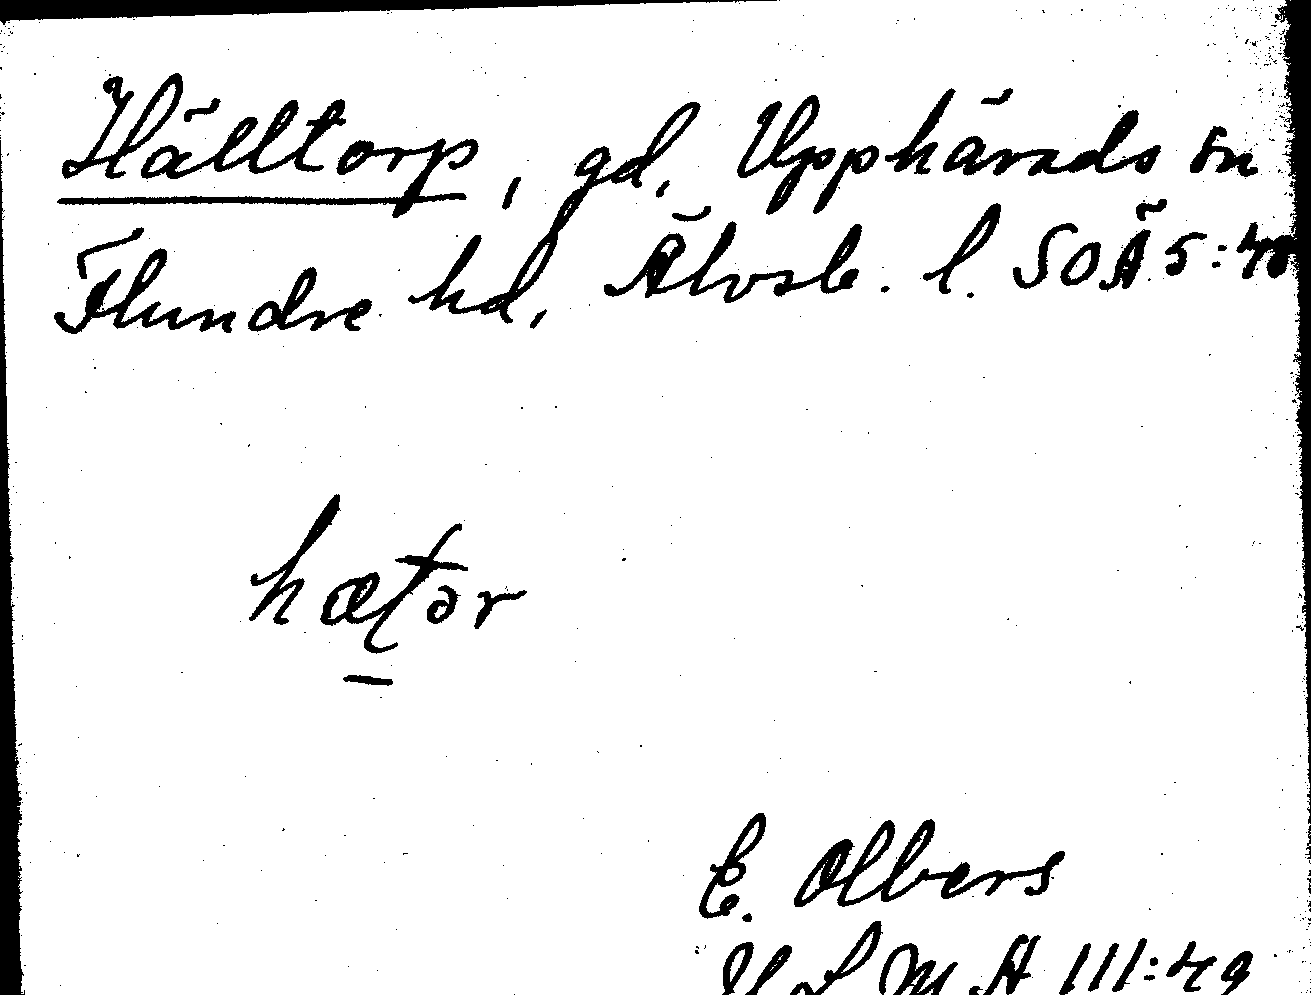 Hälltorp, gd, Upphärads sn
Flundre hd, Älvsb. l. SOÄ 5:48
hætər
E. Olbers
VFMA III:49